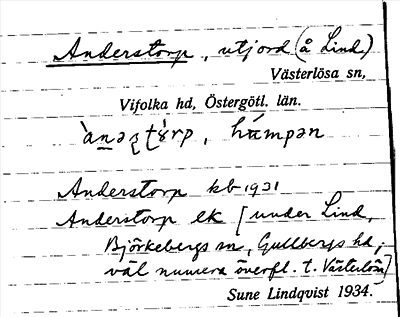 Anderstorp, utjord (å Lind)
Västerlösa sn,
Vifolka hd, Östergötl. län.
Anderstorp kb 1931
Anderstorp ek [under Lind,
Björkebergs sn, Gullbergs hd,
väl numera överfl. t. Västerlösa]
Sune Lindqvist 1934.